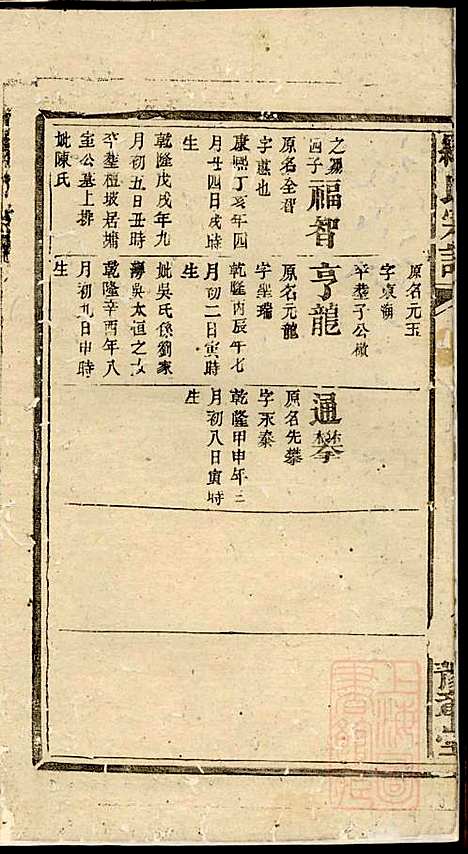 羅氏宗譜
豫章堂
之羆四子
福智
原名全智
字慧也
康熙丁亥年四
月廿四日戌時
生
乾隆戊戌年九
月初五日丑時
卒葬檀坡居塘
全公墓上排
妣陳氏
原名元玉
字東湖
卒葬子公墩
亨龍
原名元龍
字聖瑞
乾隆丙辰年七
月初二日寅時
生
妣吳氏係劉家
灣吳太恒之女
乾隆辛酉年八
月初九日申時
生
通攀
原名先攀
字永泰
乾隆甲申年三
月初八日寅時
生
上海圖書館藏